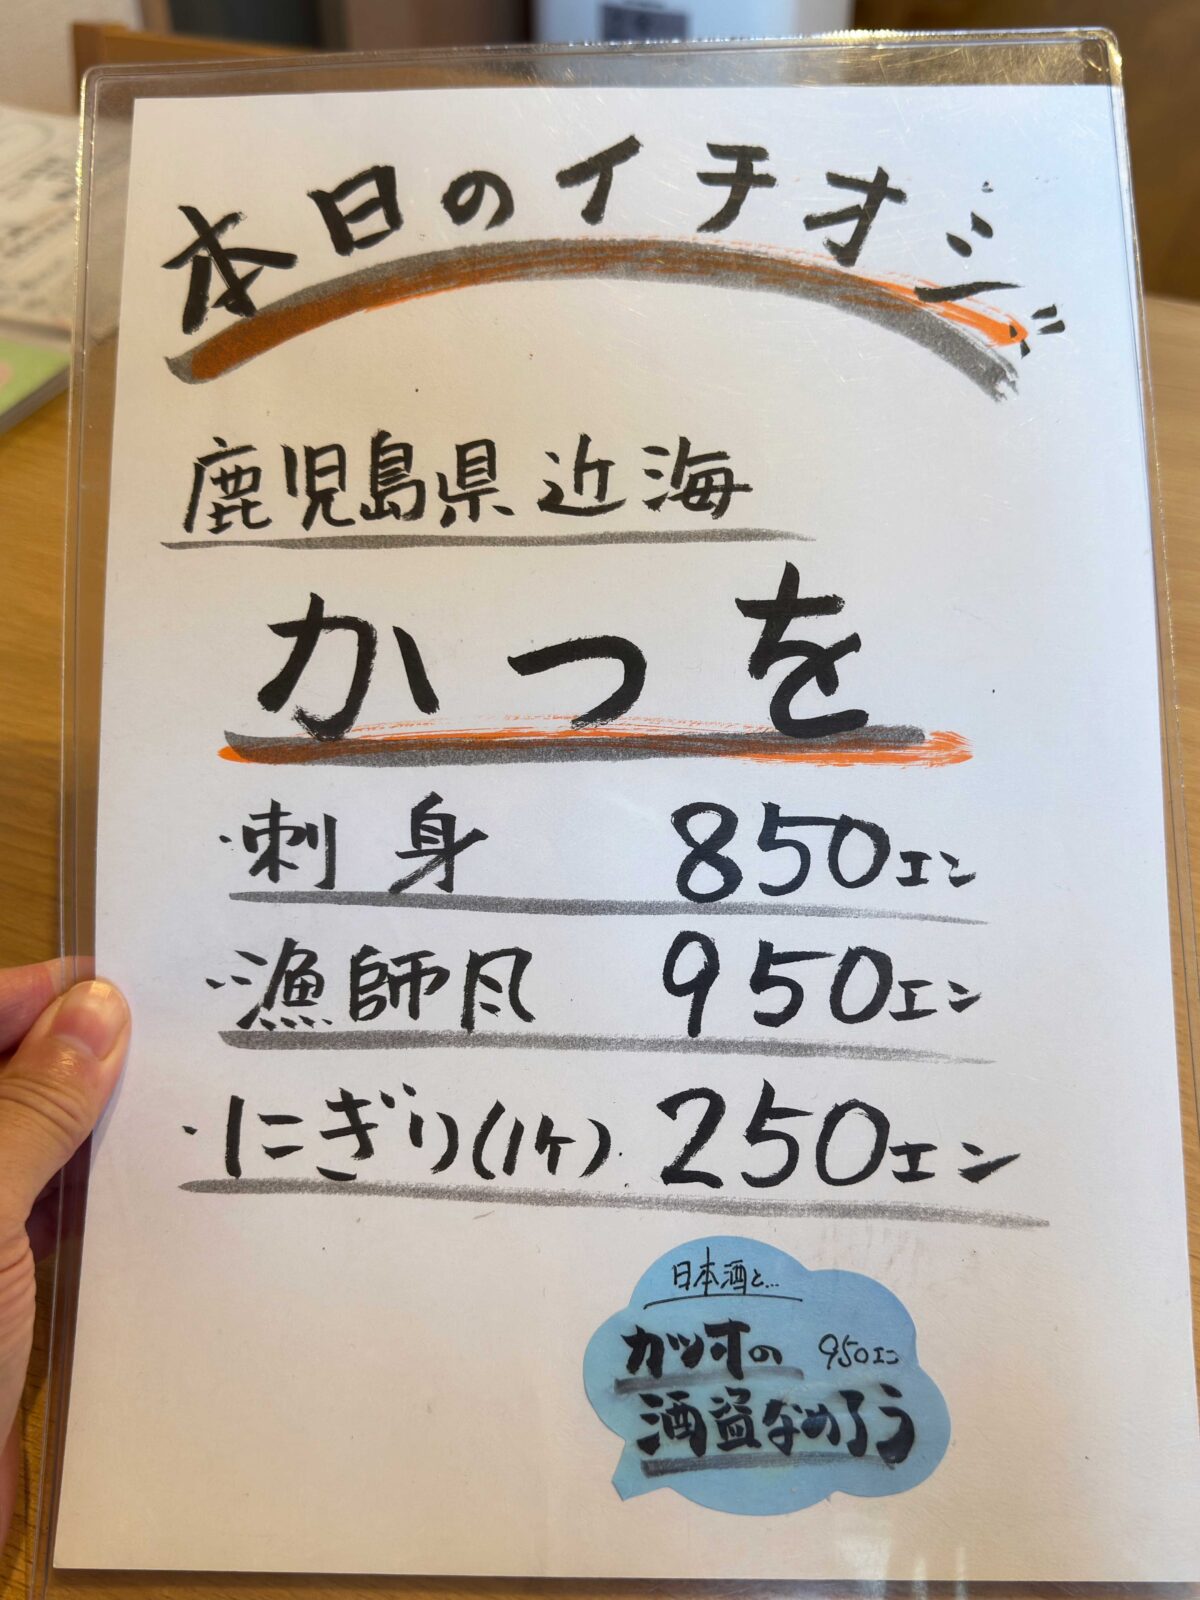 本日のイチオシ
鹿児島県近海
かつを
・刺身 850エン
・漁師风 950エン
・にぎり(1ケ) 250エン
日本酒と…
カツオの 950エン
酒盗なめろう